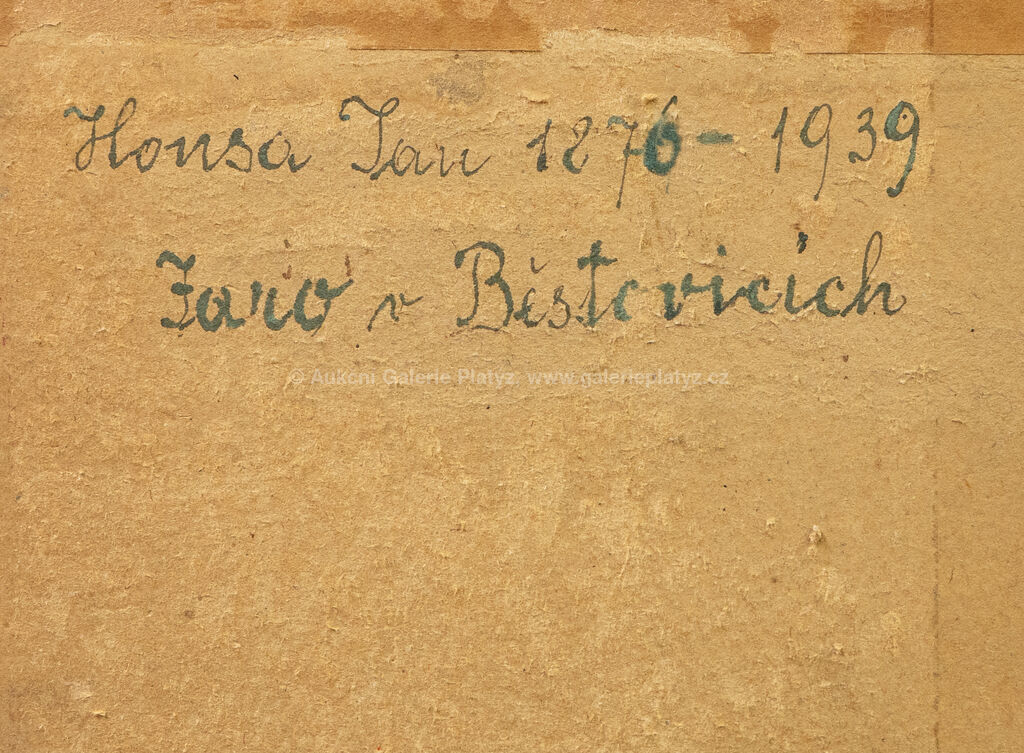 Honsa Jan 1876 - 1939
Jaro v Běstovicích
© Aukční Galerie Platýz, www.galerieplatyz.cz